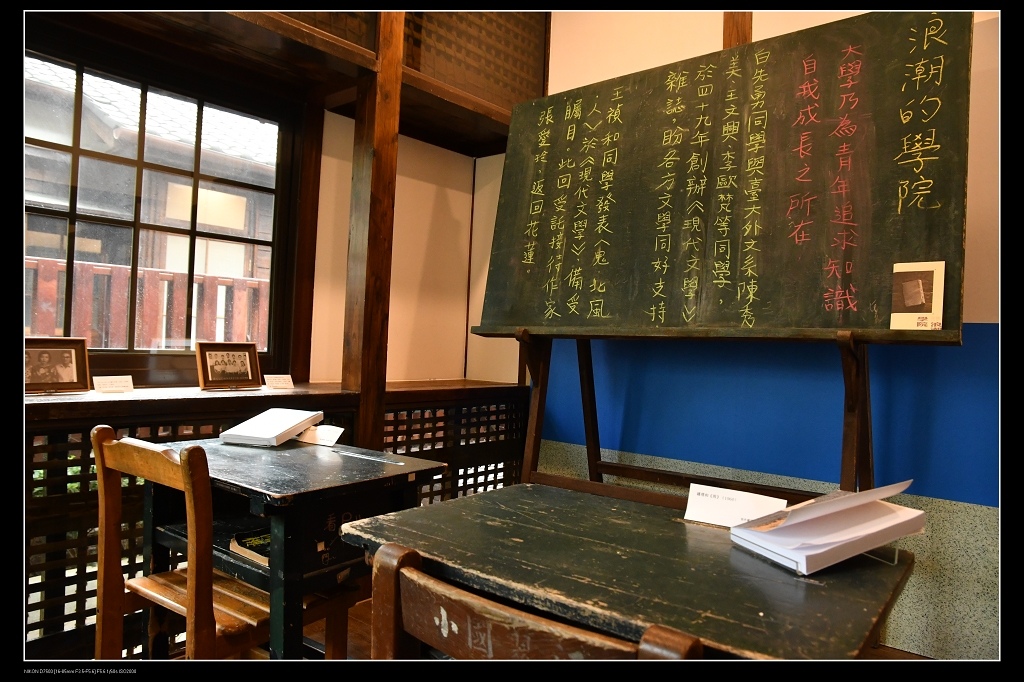 浪潮的學院
大學乃為青年追求知識
自我成長之所在
白先勇同學與臺大外文系陳秀
美、王文興、李歐梵等同學,
於四十九年創辦《現代文學》
雜誌,盼各方文學同好支持
王禎和同學發表〈鬼、北風、
人〉於《現代文學》備受
矚目,此回受託接待作家
張愛玲,返回花蓮。
小國